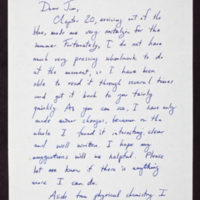 Dear Jim,
Chapter 20, arriving out of the
blue, made me very nostalgic for the
summer. Fortunately, I do not have
much very pressing schoolwork to do
at the moment, so I have been
able to read it through several times
and get it back to you fairly
quickly. As you can see, I have only
made minor changes, because on the
whole I found it interesting, clear
and well written. I hope my
suggestions will be helpful. Please
let me know if there is anything
more I can do.
Aside from physical chemistry I